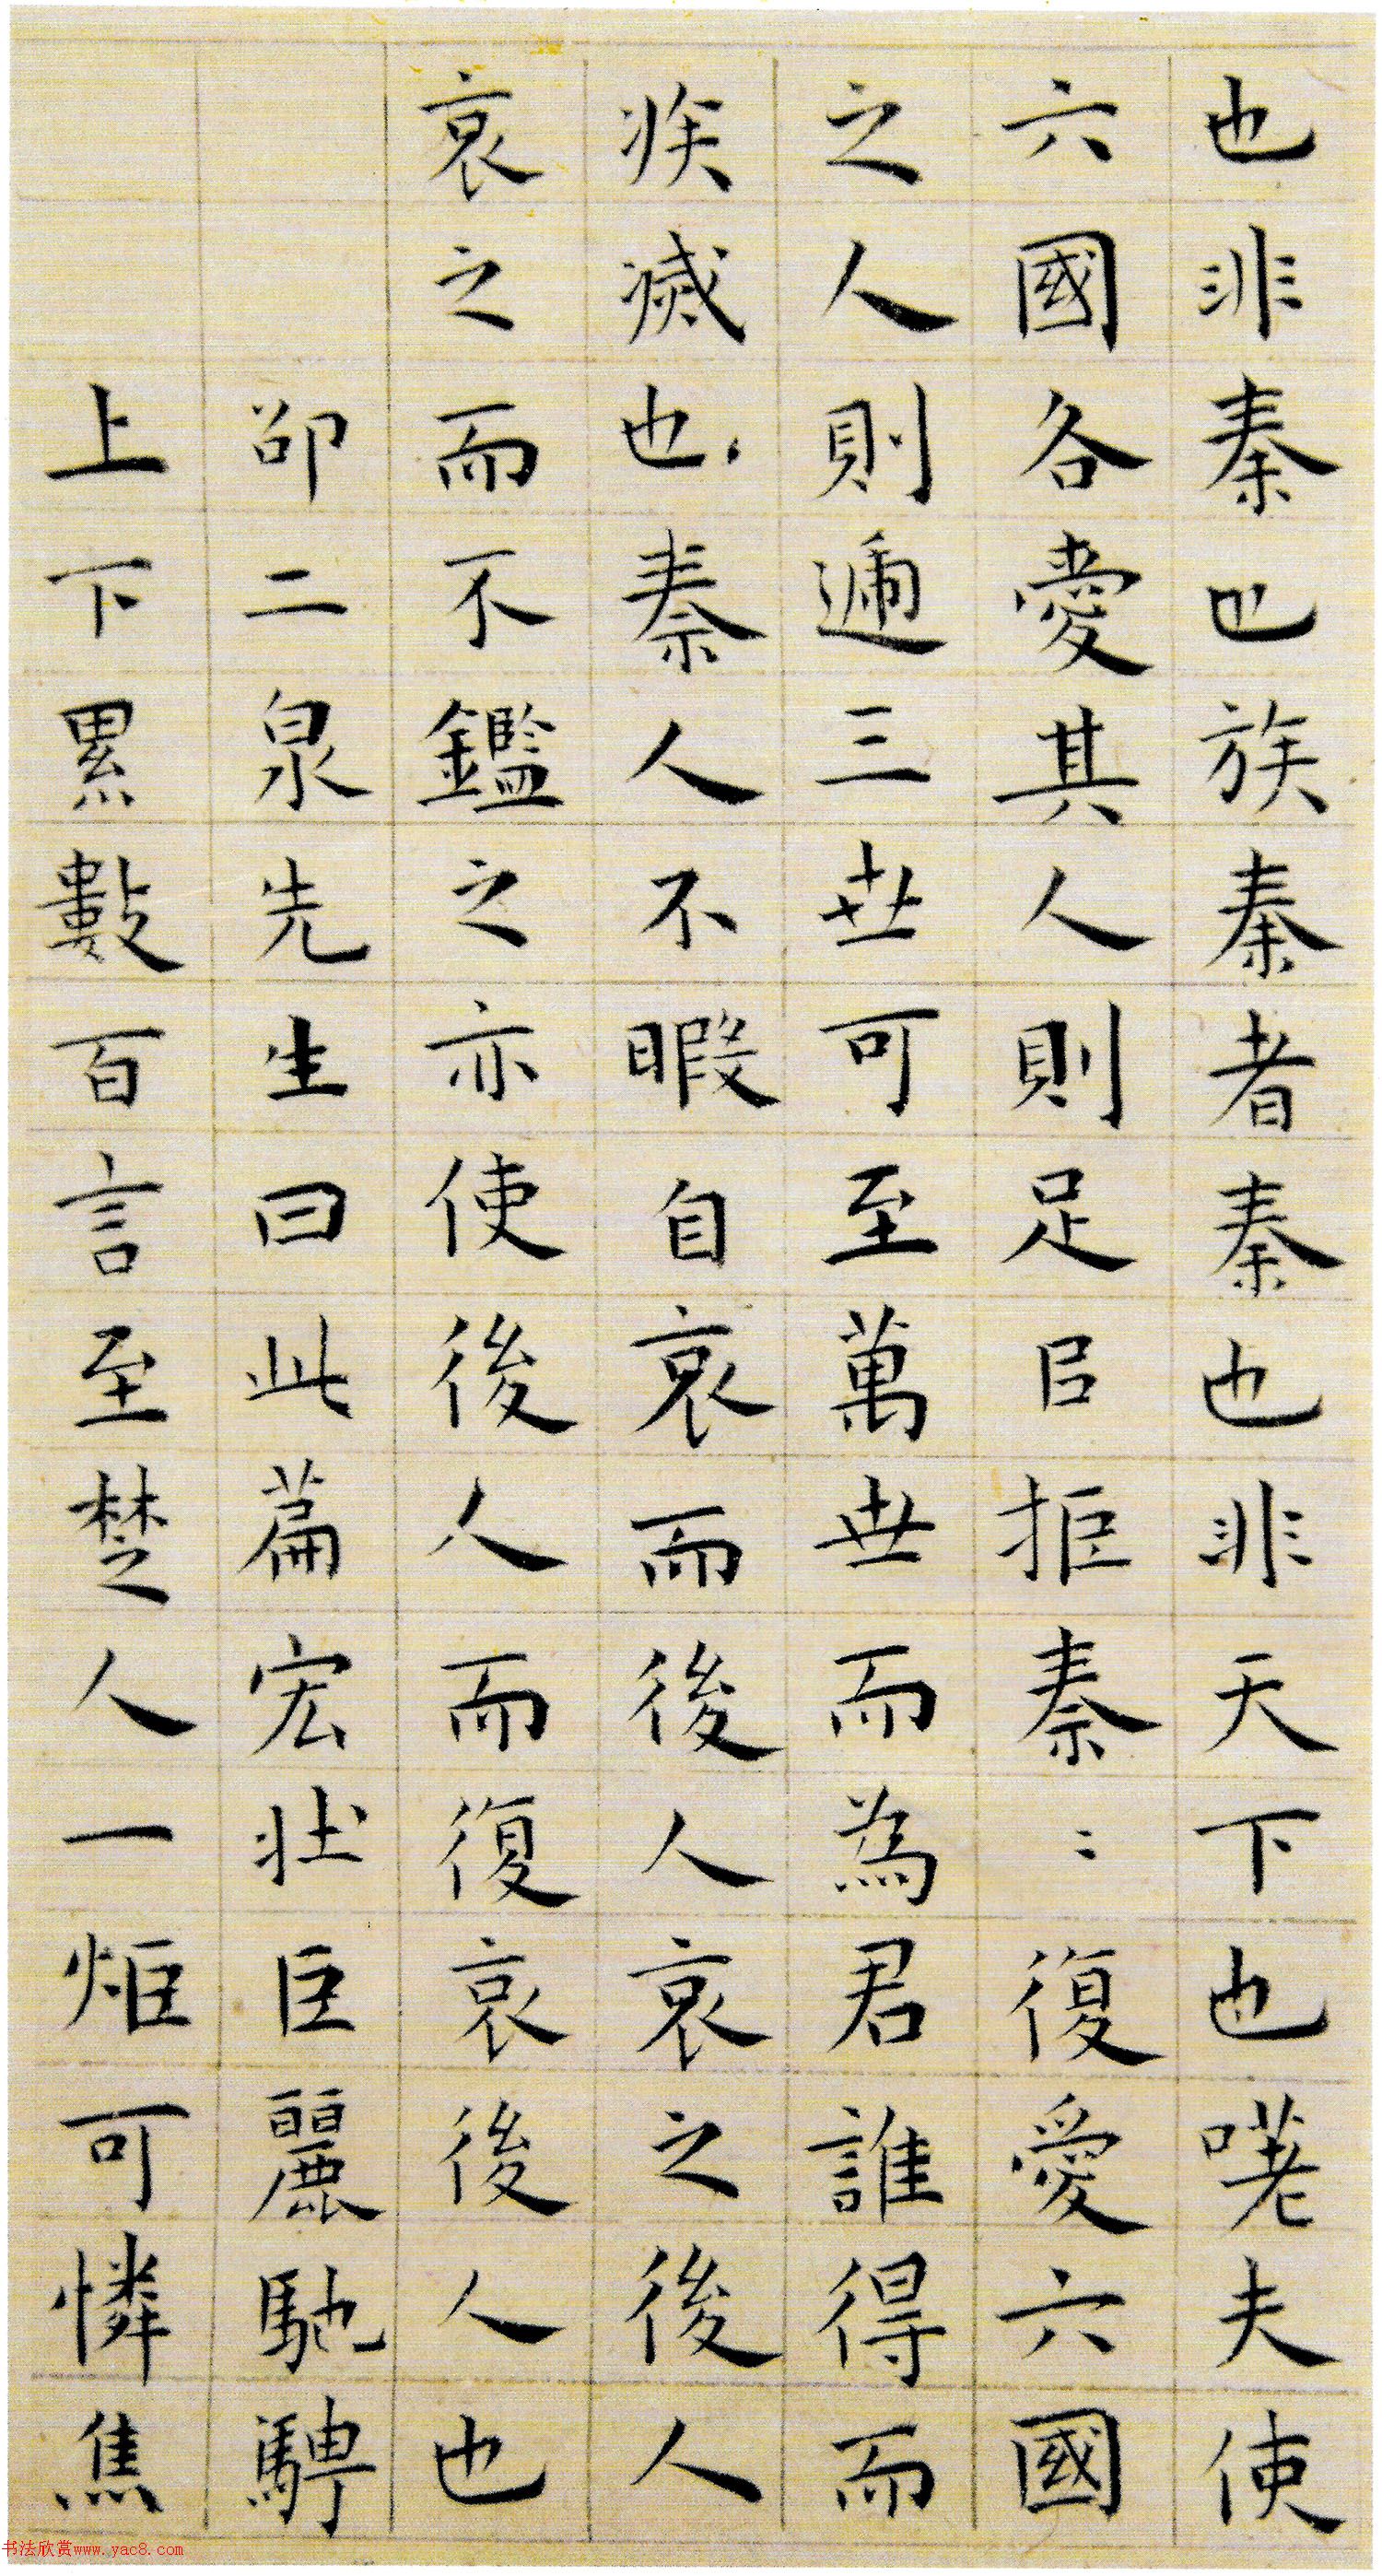 也非秦也族秦者秦也非天下也嗟夫使
六國各愛其人則足㠯拒秦〻復愛六國
之人則遞三世可至萬世而為君誰得而
族滅也秦人不暇自哀而後人哀之後人
哀之而不鑑之亦使後人而復哀後人也
邵二泉先生曰此篇宏壯巨麗馳騁
上下累數百言至楚人一炬可憐焦
书法欣赏www.yac8.com